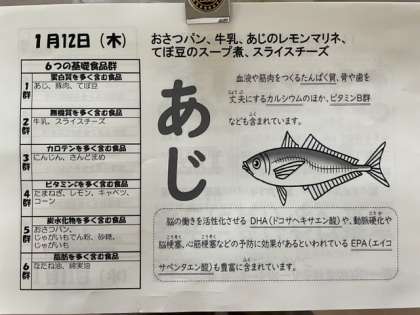 1月12日(木)
おさつパン、牛乳、あじのレモンマリネ、
てぼ豆のスープ煮、スライスチーズ
6つの基礎食品群
1群
蛋白質を多く含む食品
あじ、豚肉、てぼ豆
2群
無機質を多く含む食品
牛乳、スライスチーズ
3群
カロテンを多く含む食品
にんじん、さんどまめ
4群
ビタミンCを多く含む食品
たまねぎ、レモン、キャベツ、
コーン
5群
炭水化物を多く含む食品
おさつパン、
じゃがいもでん粉、砂糖、
じゃがいも
6群
脂肪を多く含む食品
なたね油、綿実油
あじ
血液や筋肉をつくるたんぱく質、骨や歯を
丈夫にするカルシウムのほか、ビタミンB群
なども含まれています。
脳の働きを活性化させる DHA(ドコサヘキサエン酸)や、動脈硬化や
脳梗塞、心筋梗塞などの予防に効果があるといわれている EPA(エイコ
サペンタエン酸)も豊富に含まれています。